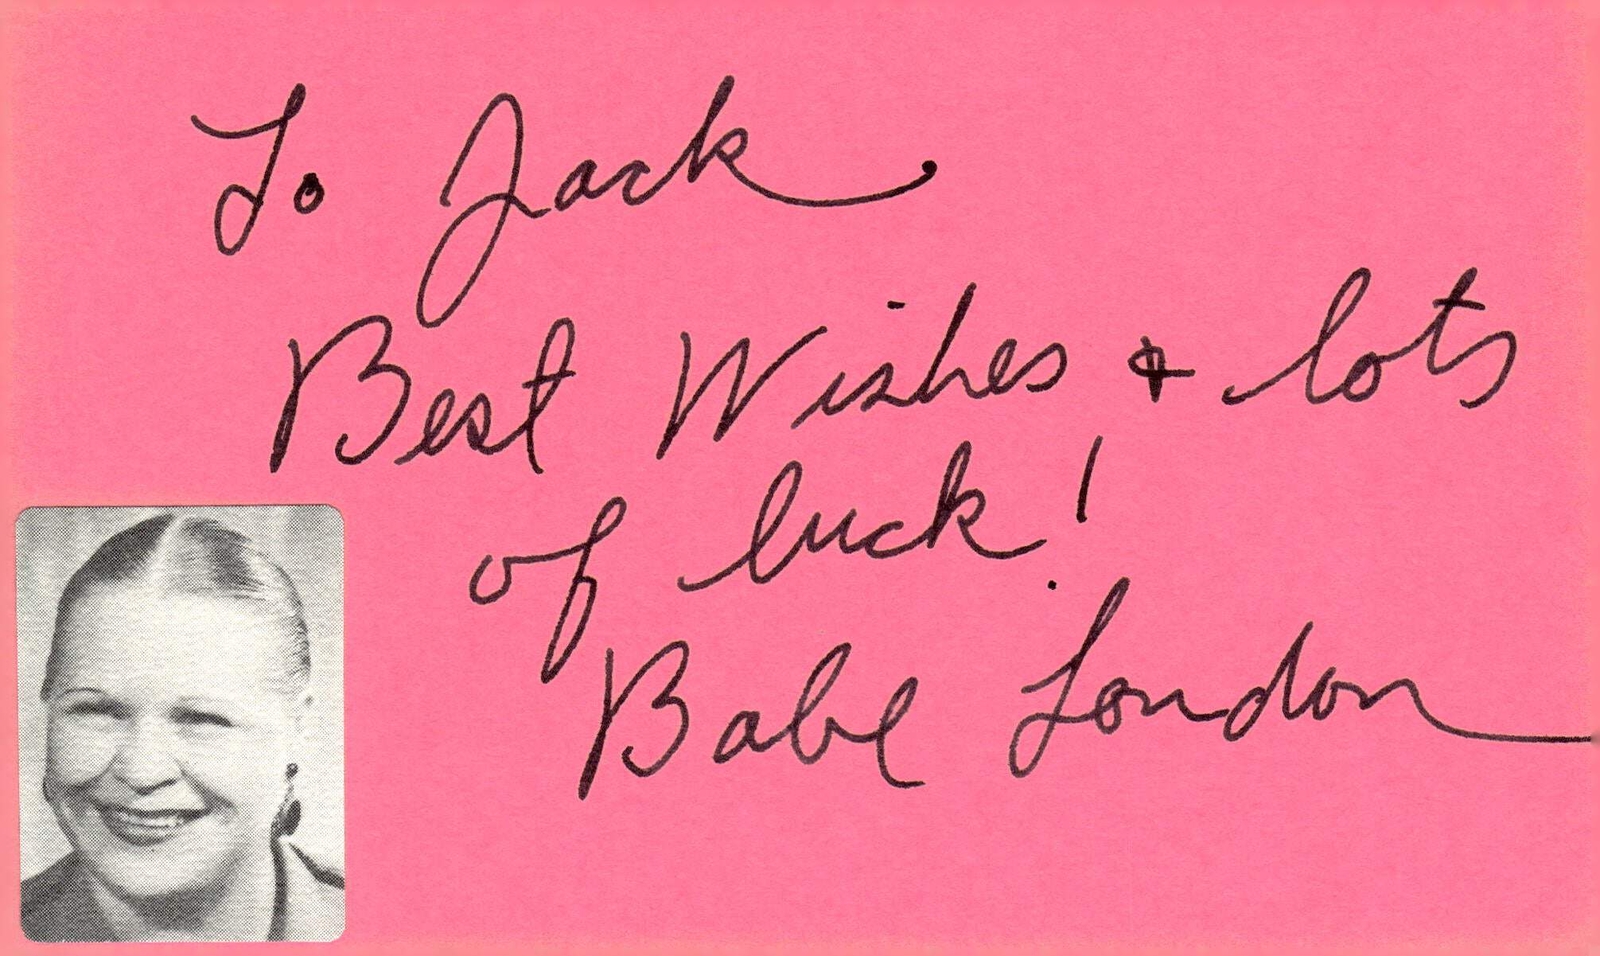 To Jack
Best Wishes & lots
of luck!
Babe London